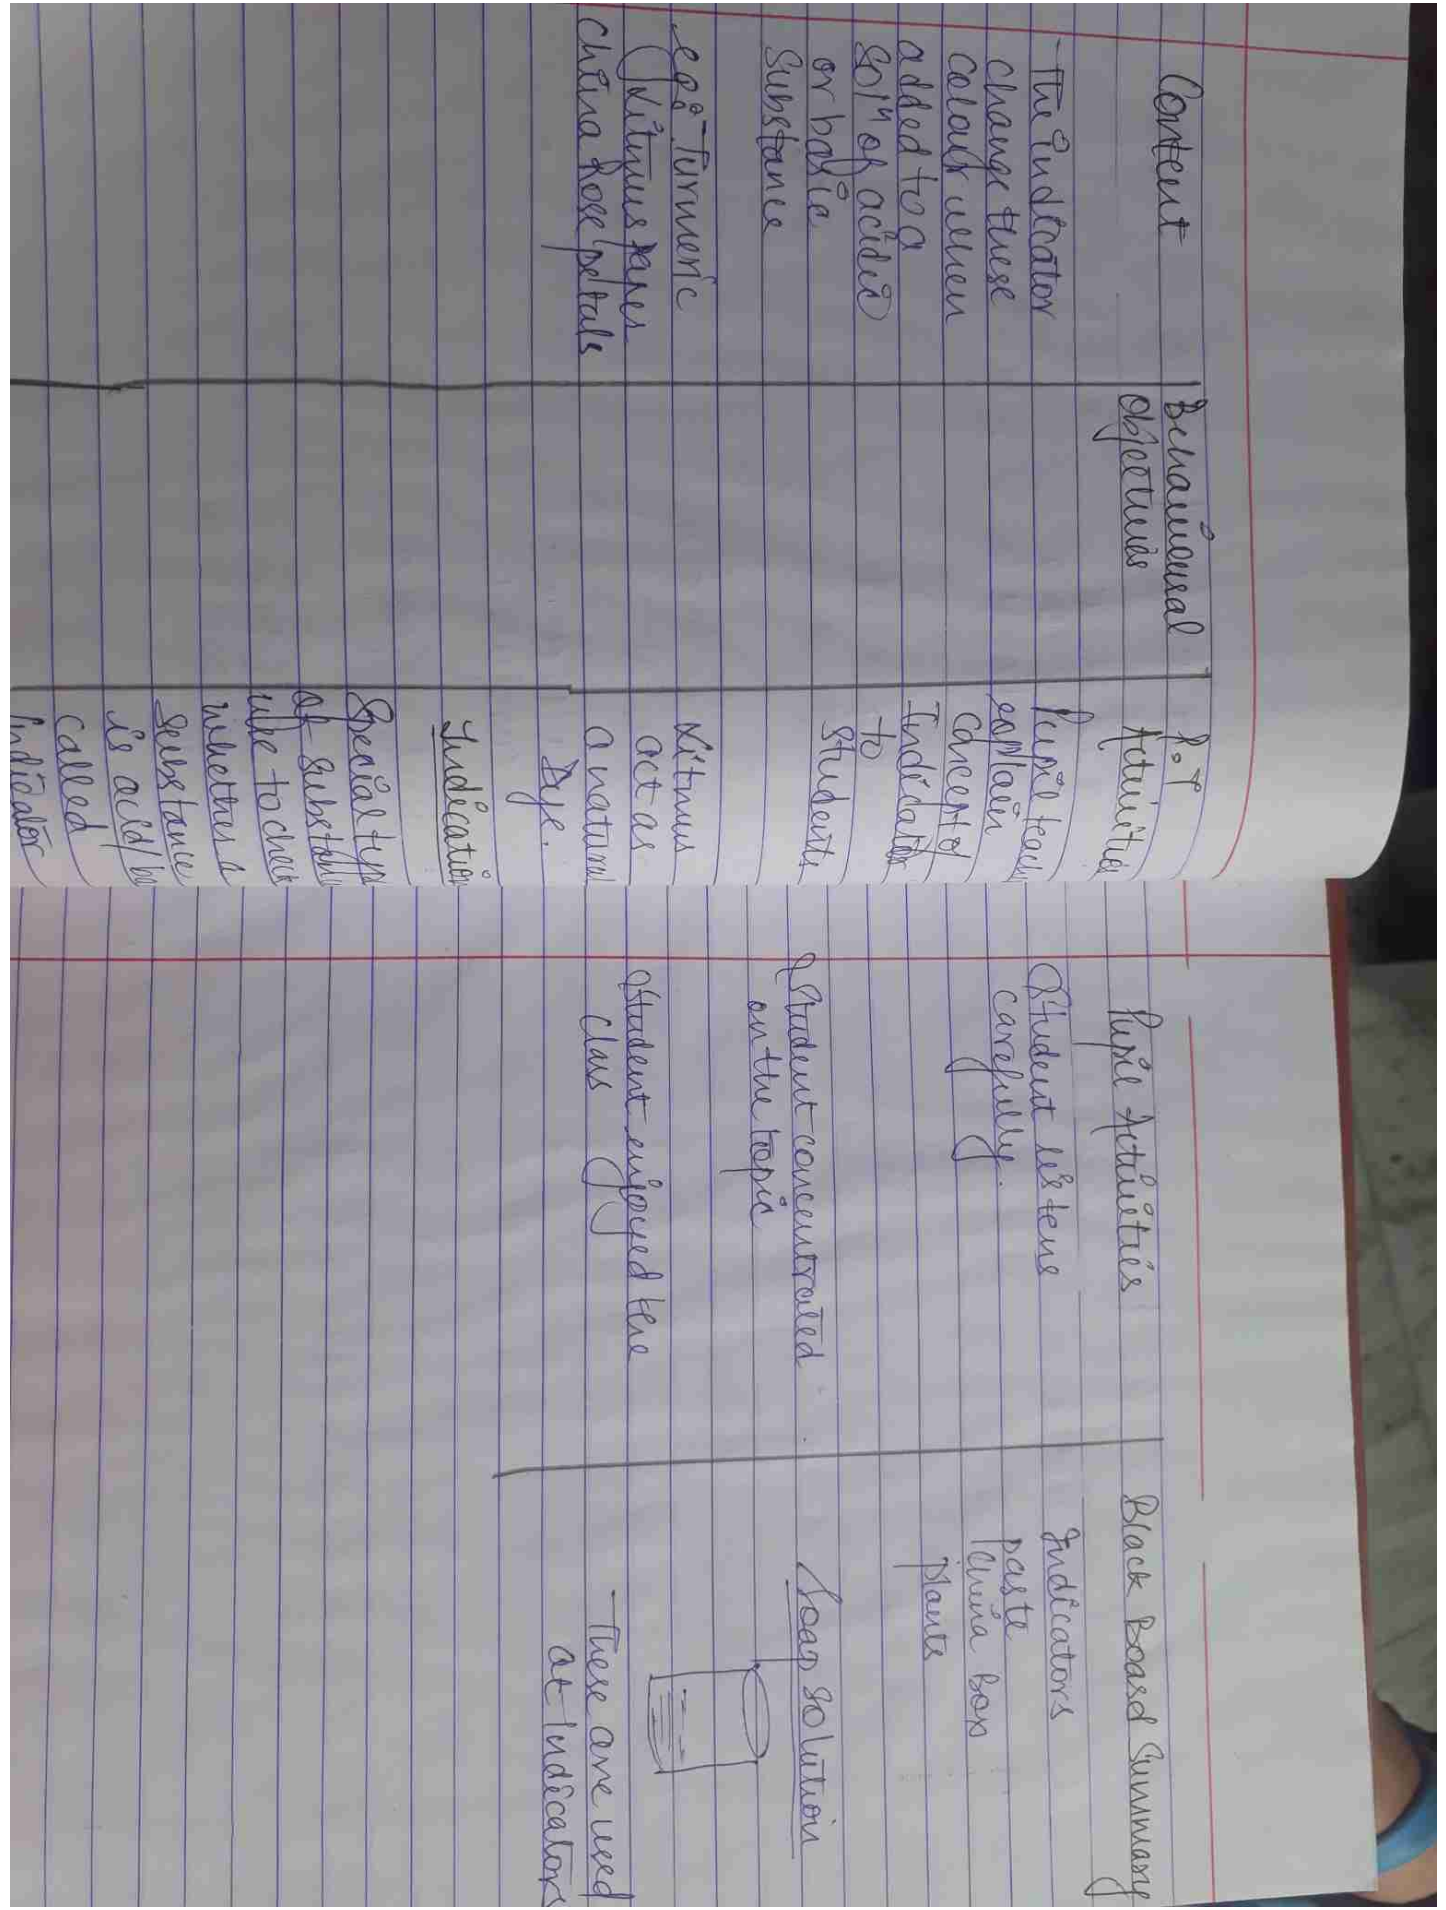 Content
- The indicator
change these
colour when
added to a
Solⁿ of acidic
or basic
Substance
eg:- Turmeric
(Litmus paper
China Rose petals
Behavioural
objectives
P.T
Activities
Pupil teach
explain
concept of
Indicator
to
students
Litmus
act as
a natural
Dye.
Indication
Special typ
of substan
use to check
whether a
substance
is acid/ba
called
indicator
Pupil Activities
Student listens
carefully.
Student concentrated
on the topic
Student enjoyed there
class
Black Board Summary
Indicators
paste
plants
Soap solution
- These are used
at Indicators